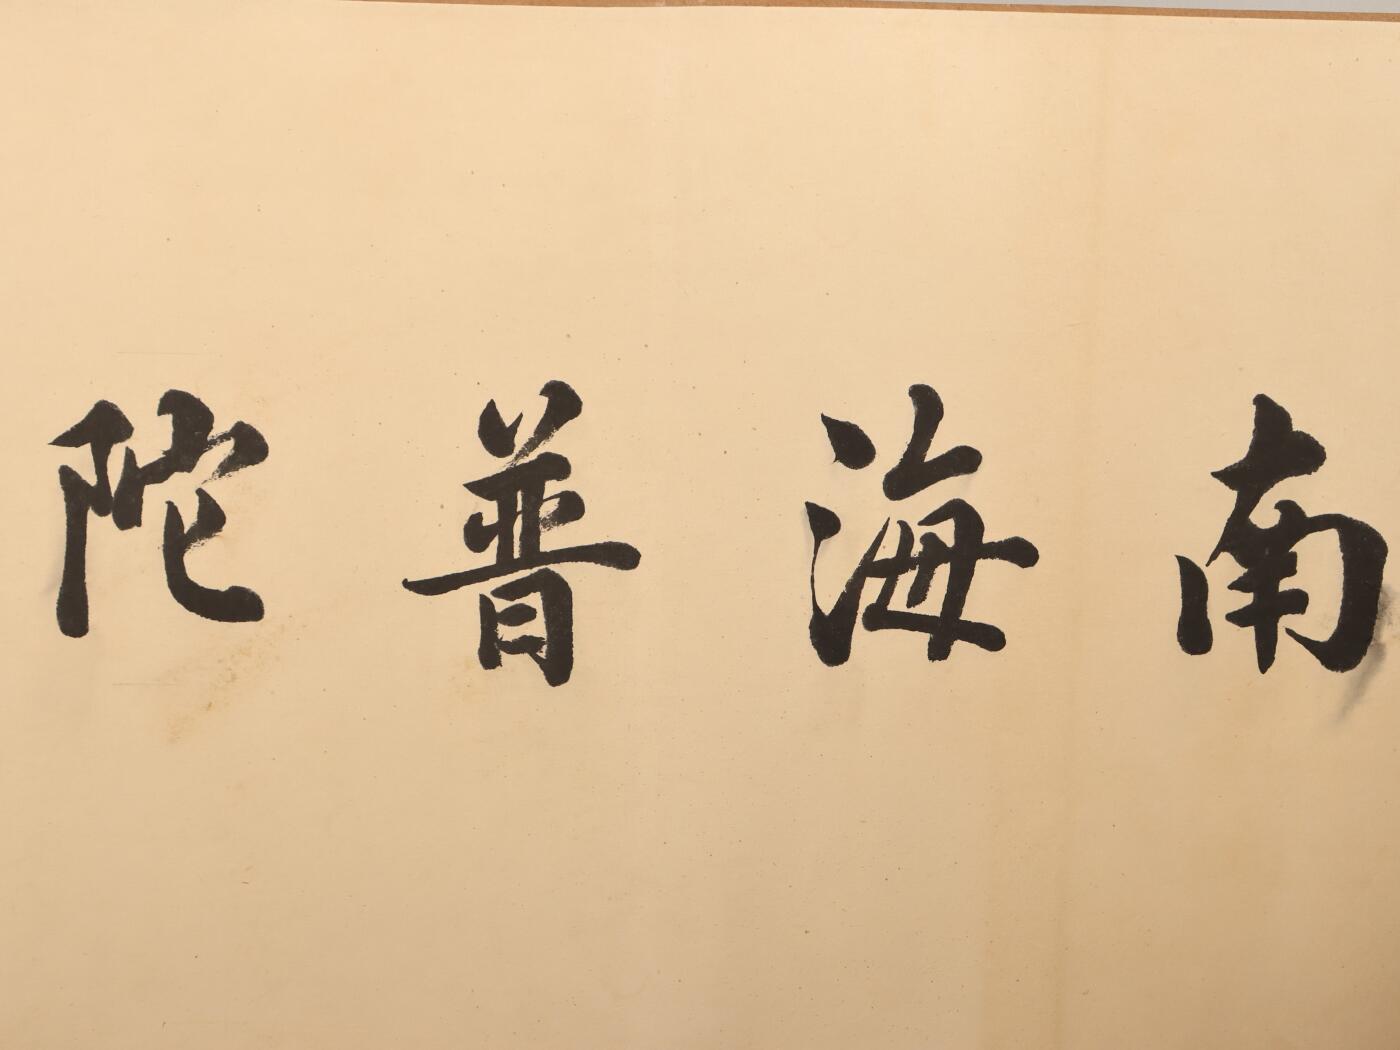 南海普陀